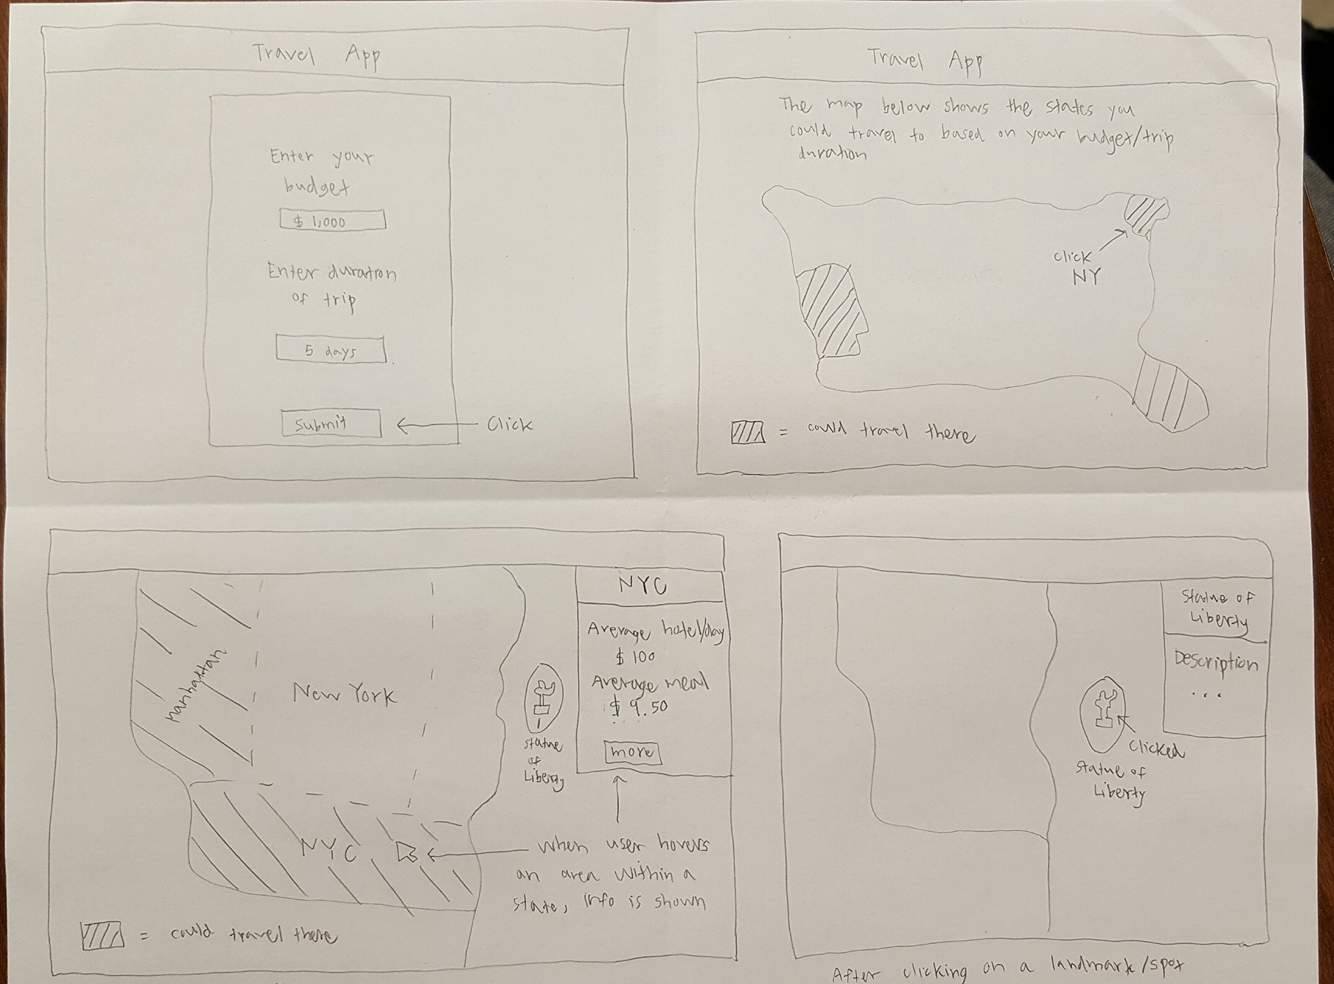 Travel App
Enter your
budget
$ 1,000
Enter duration
of trip
5 days
Submit
Click
Travel App
The map below shows the states you
could travel to based on your budget/trip
duration
click
NY
= could travel there
Manhattan
New York
NYC
= could travel there
Statue
of
Liberty
NYC
Average hotel/day
$ 100
Average meal
$ 9.50
more
When user hovers
an area within a
state, info is shown
Statue of
Liberty
Description
...
Clicked
Statue of
Liberty
After clicking on a landmark/spot